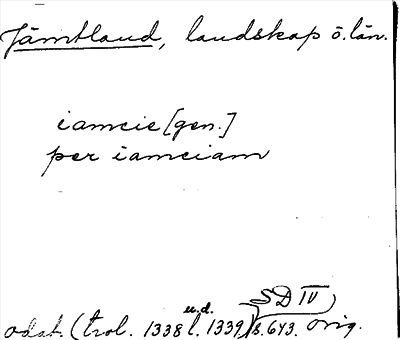 Jämtland, landskap o. län.
iamcie [gen.]
per iamciam
u.d. SD IV
odat. (trol. 1338 l. 1339) s. 643. orig.